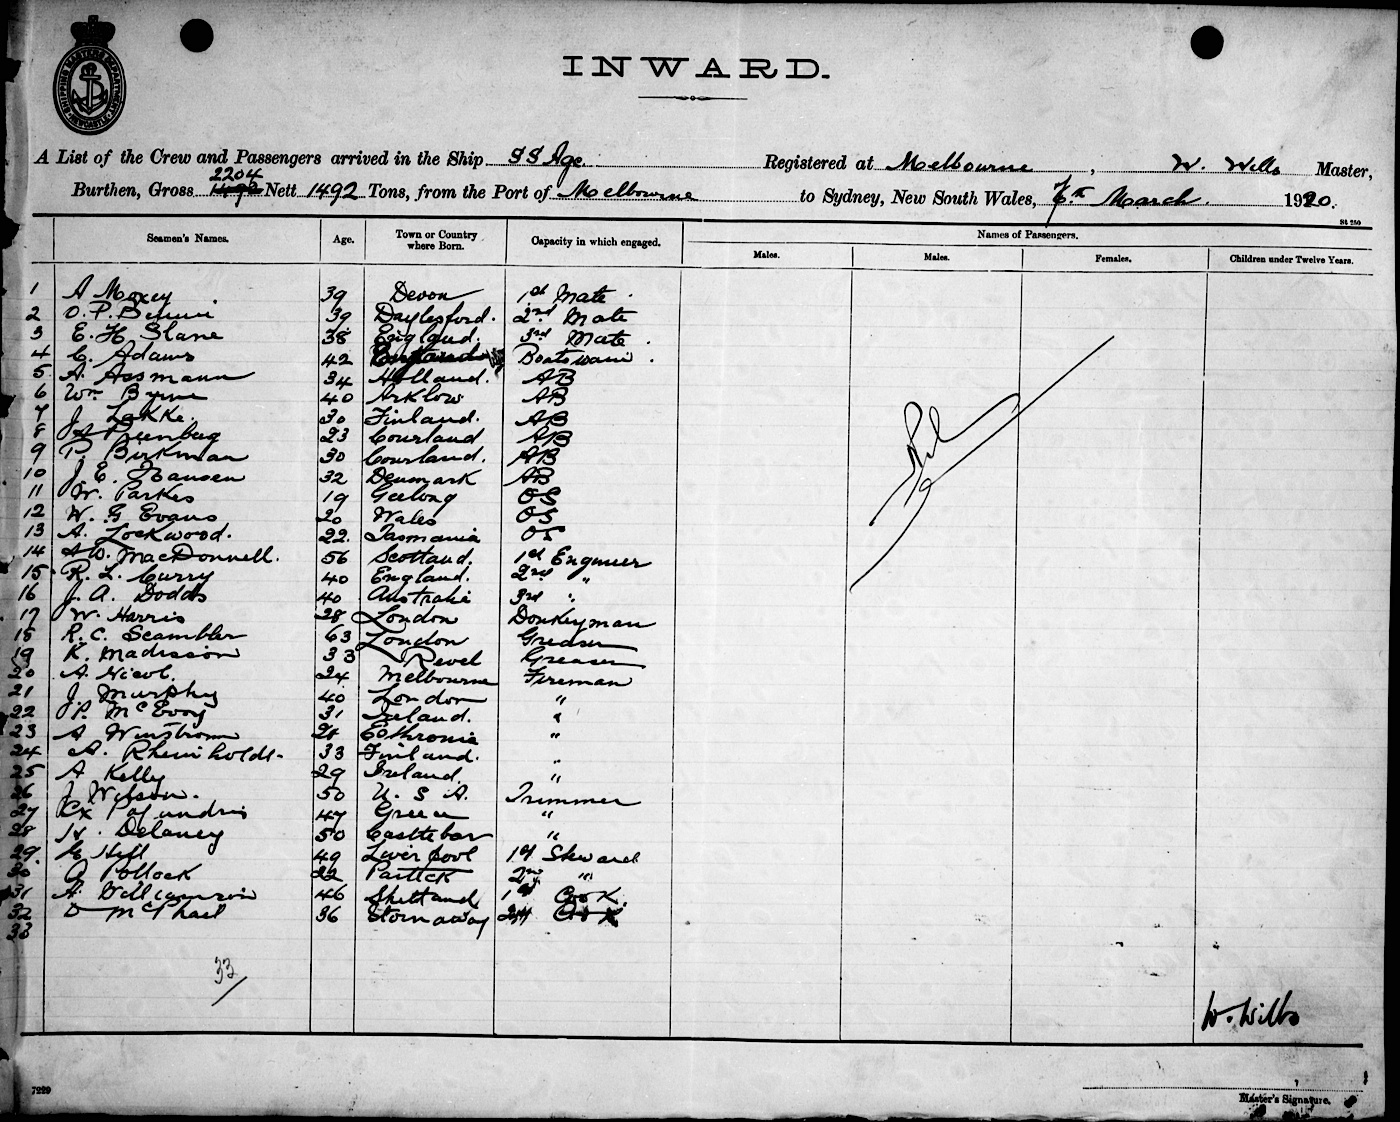 SHIPPING MASTERS DEPARTMENT NEWCASTLE
INWARD.
A List of the Crew and Passengers arrived in the Ship SS Age. Registered at Melbourne, W. Wills Master,
2204
Burthen, Gross 1492 Nett 1492 Tons, from the Port of Melbourne to Sydney, New South Wales, March. 1920.
St 250
Seamen's Names. Age. Town or Country where Born. Capacity in which engaged. Names of Passengers.
Males. Males. Females. Children under Twelve Years.
1 A Moxey 39 Devon 1st Mate.
2 O. P. 39 Daylesford. 2nd Mate
3 E. H. Slane 38 England. 3rd Mate.
4 C. Adams 42 Boatswain.
5 A. Assmann 34 Holland. AB
6 Wm Byrne 40 Arklow AB
7 J. Lakke. 30 Finland. AB
8 23 Courland AB
9 P. Birkman 30 Courland. AB
10 J. E. Hansen 32 Denmark AB
11 W. Parkes 19 Geelong OS
12 W. G Evans 20 Wales OS
13 A. Lockwood. 22. Tasmania OS
14 A W. MacDonnell. 56 Scotland. 1st Engineer
15 R. L. Curry 40 England. 2nd "
16 J. A. Dodds 40 Australia 3rd "
17 W. Harris 28 London Donkeyman
18 R. C. Scambler 63 London Greaser
19 K. Madisson 33 Revel Greaser
20 A. Nicol. 24 Melbourne Fireman
21 J. Murphy 40 London "
22 J. P. McEvoy 31 Ireland. "
23 A Winstrom 28 Esthronia "
24 A. Rheinholdt- 33 Finland. "
25 A Kelly 29 Ireland. "
26 J Wilson. 50 U. S A. Trimmer
27 47 Greece "
28 H. Delaney 50 Castlebar "
29. Hill 49 Liverpool 1st Steward
30 Pollock 22 Partick 2nd "
31 A. Williamson 46 Shetland 1st Cook.
32 D McPhail 36 Stornaway 2nd Cook
33
33
W. Wills
7229
Master's Signature.